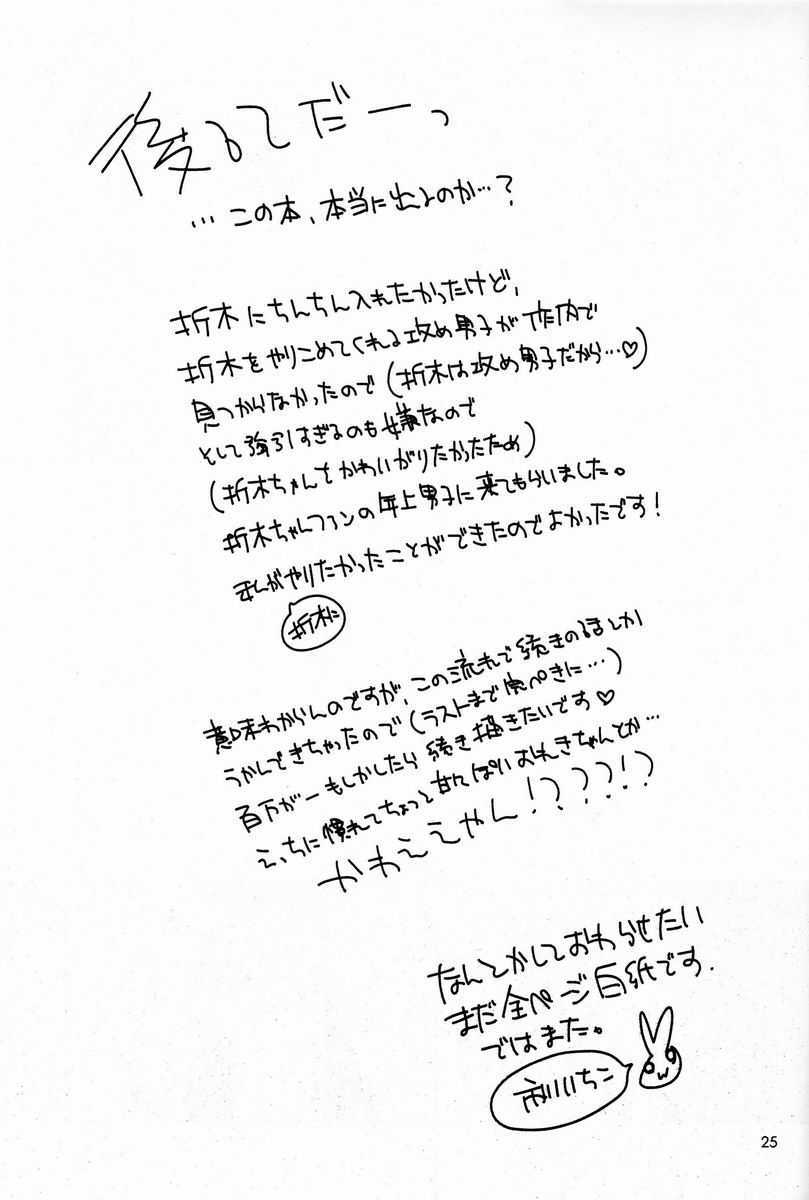 後るてだーっ
…この本、本当に出るのか…?
折木にちんちん入れたかったけど、
折木をやりこめてくれる攻め男子が作内で
見つからなかったので(折木は攻め男子だから…♡)
として強引すぎるのも嫌なので
(折木ちゃんをかわいがりたかったため)
折木ちゃんファンの年上男子に来てもらいました。
まんがやりたかったことができたのでよかったです!
折木に
意味わからんのですが、この流れで続きのはなしとか
うかんできちゃったので(ラストまで完ぺきに…)
百万が一もしかしたら続き描きたいです♡
えっちに慣れてちょっと甘えっぽいおれきちゃんとか…
かわええやん!????!?
なんとかしておわらせたい
まだ全ページ白紙です.
ではまた。
いちこ
25